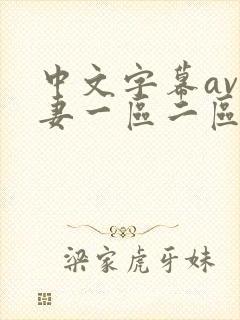 中文字幕av
妻一區二區
梁家虎牙妹